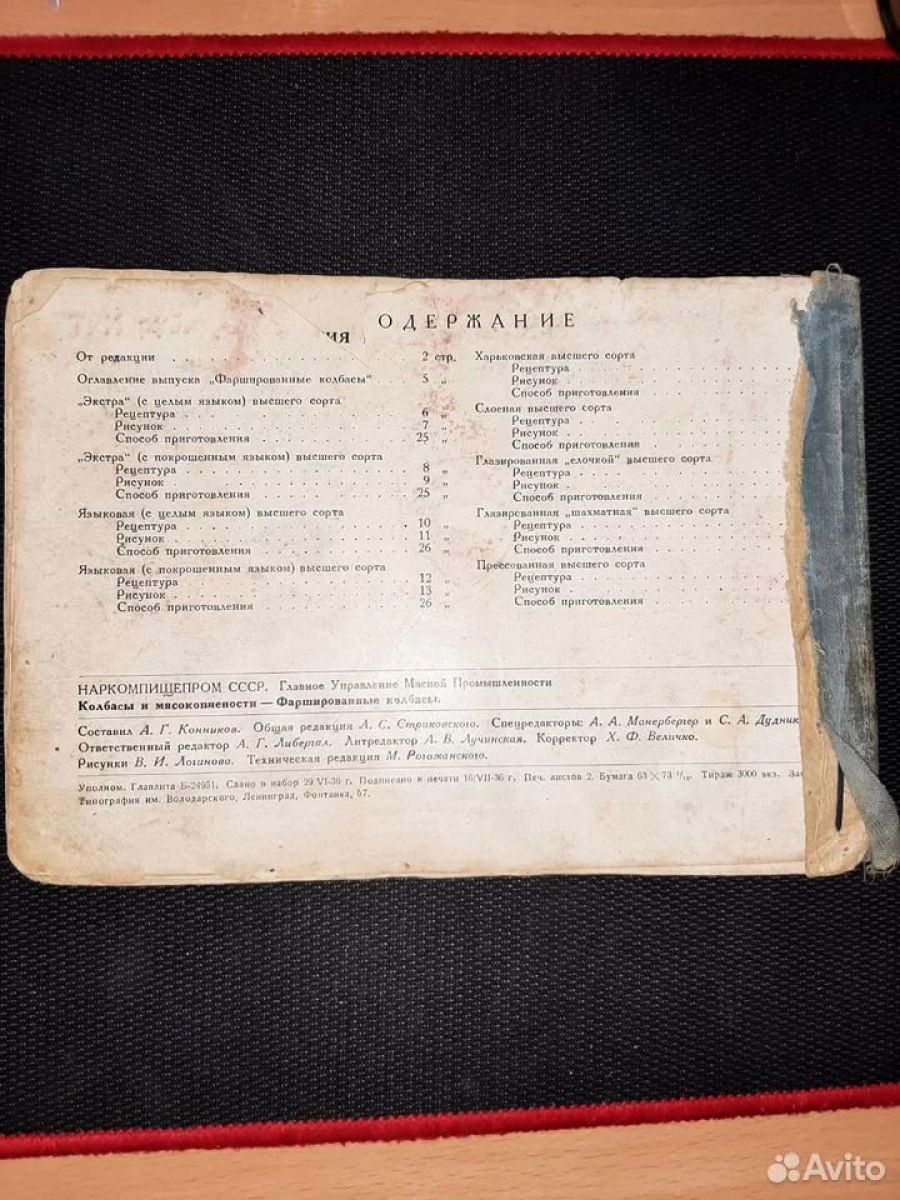 ОДЕРЖАНИЕ
ИЯ
От редакции . . . . . . . . . . . . 2 стр.
Оглавление выпуска „Фаршированные колбасы“ . . . 5 „
„Экстра“ (с целым языком) высшего сорта
Рецептура . . . . . . . . . . . . 6 „
Рисунок . . . . . . . . . . . . 7 „
Способ приготовления . . . . . . . . 25 „
„Экстра“ (с покрошенным языком) высшего сорта
Рецептура . . . . . . . . . . . . 8 „
Рисунок . . . . . . . . . . . . 9 „
Способ приготовления . . . . . . . . 25 „
Языковая (с целым языком) высшего сорта
Рецептура . . . . . . . . . . . . 10 „
Рисунок . . . . . . . . . . . . 11 „
Способ приготовления . . . . . . . . 26 „
Языковая (с покрошенным языком) высшего сорта
Рецептура . . . . . . . . . . . . 12 „
Рисунок . . . . . . . . . . . . 13 „
Способ приготовления . . . . . . . . 26 „
Харьковская высшего сорта
Рецептура . . . . . . . . .
Рисунок . . . . . . . . .
Способ приготовления . . . . .
Слоеная высшего сорта
Рецептура . . . . . . . . .
Рисунок . . . . . . . . .
Способ приготовления . . . . .
Глазированная „елочкой“ высшего сорта
Рецептура . . . . . . . . .
Рисунок . . . . . . . . .
Способ приготовления . . . . .
Глазированная „шахматная“ высшего сорта
Рецептура . . . . . . . . .
Рисунок . . . . . . . . .
Способ приготовления . . . . .
Прессованная высшего сорта
Рецептура . . . . . . . . .
Рисунок . . . . . . . . .
Способ приготовления . . . . .
НАРКОМПИЩЕПРОМ СССР. Главное Управление Мясной Промышленности
Колбасы и мясокопчености — Фаршированные колбасы.
Составил А. Г. Конников. Общая редакция Л. С. Стриковского. Спецредакторы: А. А. Манербергер и С. А. Дудник
Ответственный редактор А. Г. Либергал. Литредактор А. В. Лучинская. Корректор Х. Ф. Величко.
Рисунки В. И. Логинова. Техническая редакция М. Рогажанского.
Уполном. Главлита Б-24951. Сдано в набор 29/VI-36 г. Подписано к печати 16/VII-36 г. Печ. листов 2. Бумага 63 × 73 Тираж 3000 экз. Зак
Типография им. Володарского, Ленинград, Фонтанка, 57.
Avito